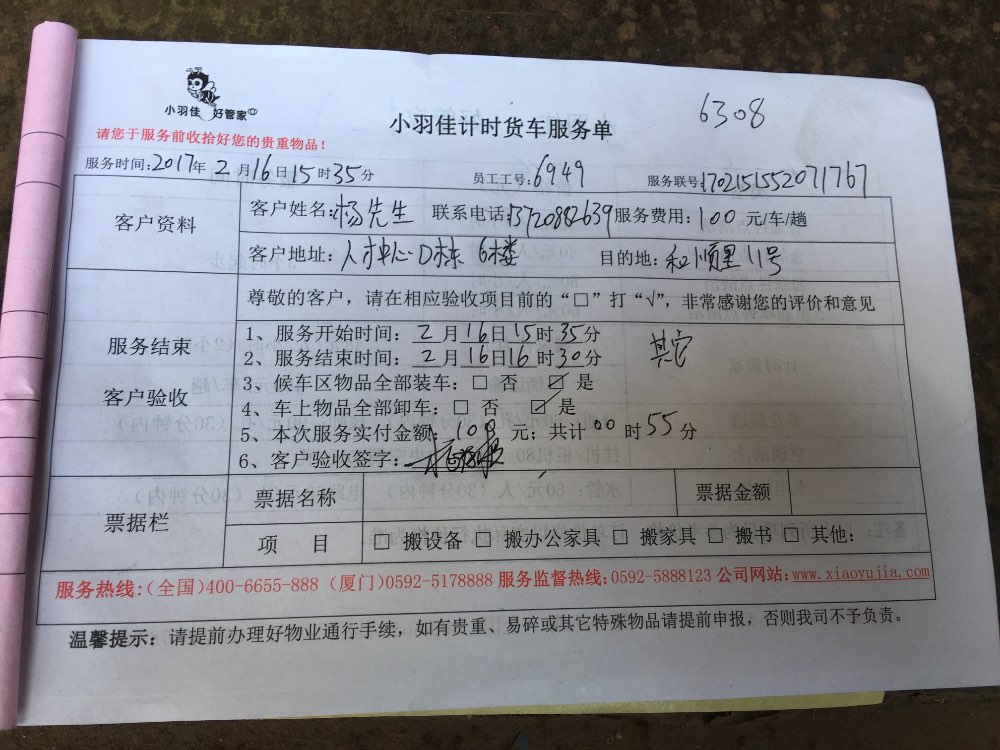 小羽佳 好管家
6308
小羽佳计时货车服务单
请您于服务前收拾好您的贵重物品！
服务时间:2017年 2 月16日15时35分 员工工号:6949 服务联号:1702151552071767
客户资料
客户姓名:杨先生 联系电话:13720882639 服务费用:100 元/车/趟
客户地址: 人才中心D栋 6楼 目的地: 和顺里 11号
尊敬的客户，请在相应验收项目前的“□”打“√”，非常感谢您的评价和意见
服务结束
客户验收
1、服务开始时间: 2 月16日15时35分
其它
2、服务结束时间: 2 月16日16时30分
3、候车区物品全部装车: □ 否 ☑ 是
4、车上物品全部卸车: □ 否 ☑ 是
5、本次服务实付金额: 100 元; 共计 00 时 55 分
6、客户验收签字:
票据栏
票据名称 票据金额
项 目 □ 搬设备 □ 搬办公家具 □ 搬家具 □ 搬书 □ 其他:
服务热线:(全国)400-6655-888 (厦门)0592-5178888 服务监督热线:0592-5888123 公司网站:www.xiaoyujia.com
温馨提示: 请提前办理好物业通行手续，如有贵重、易碎或其它特殊物品请提前申报，否则我司不予负责。